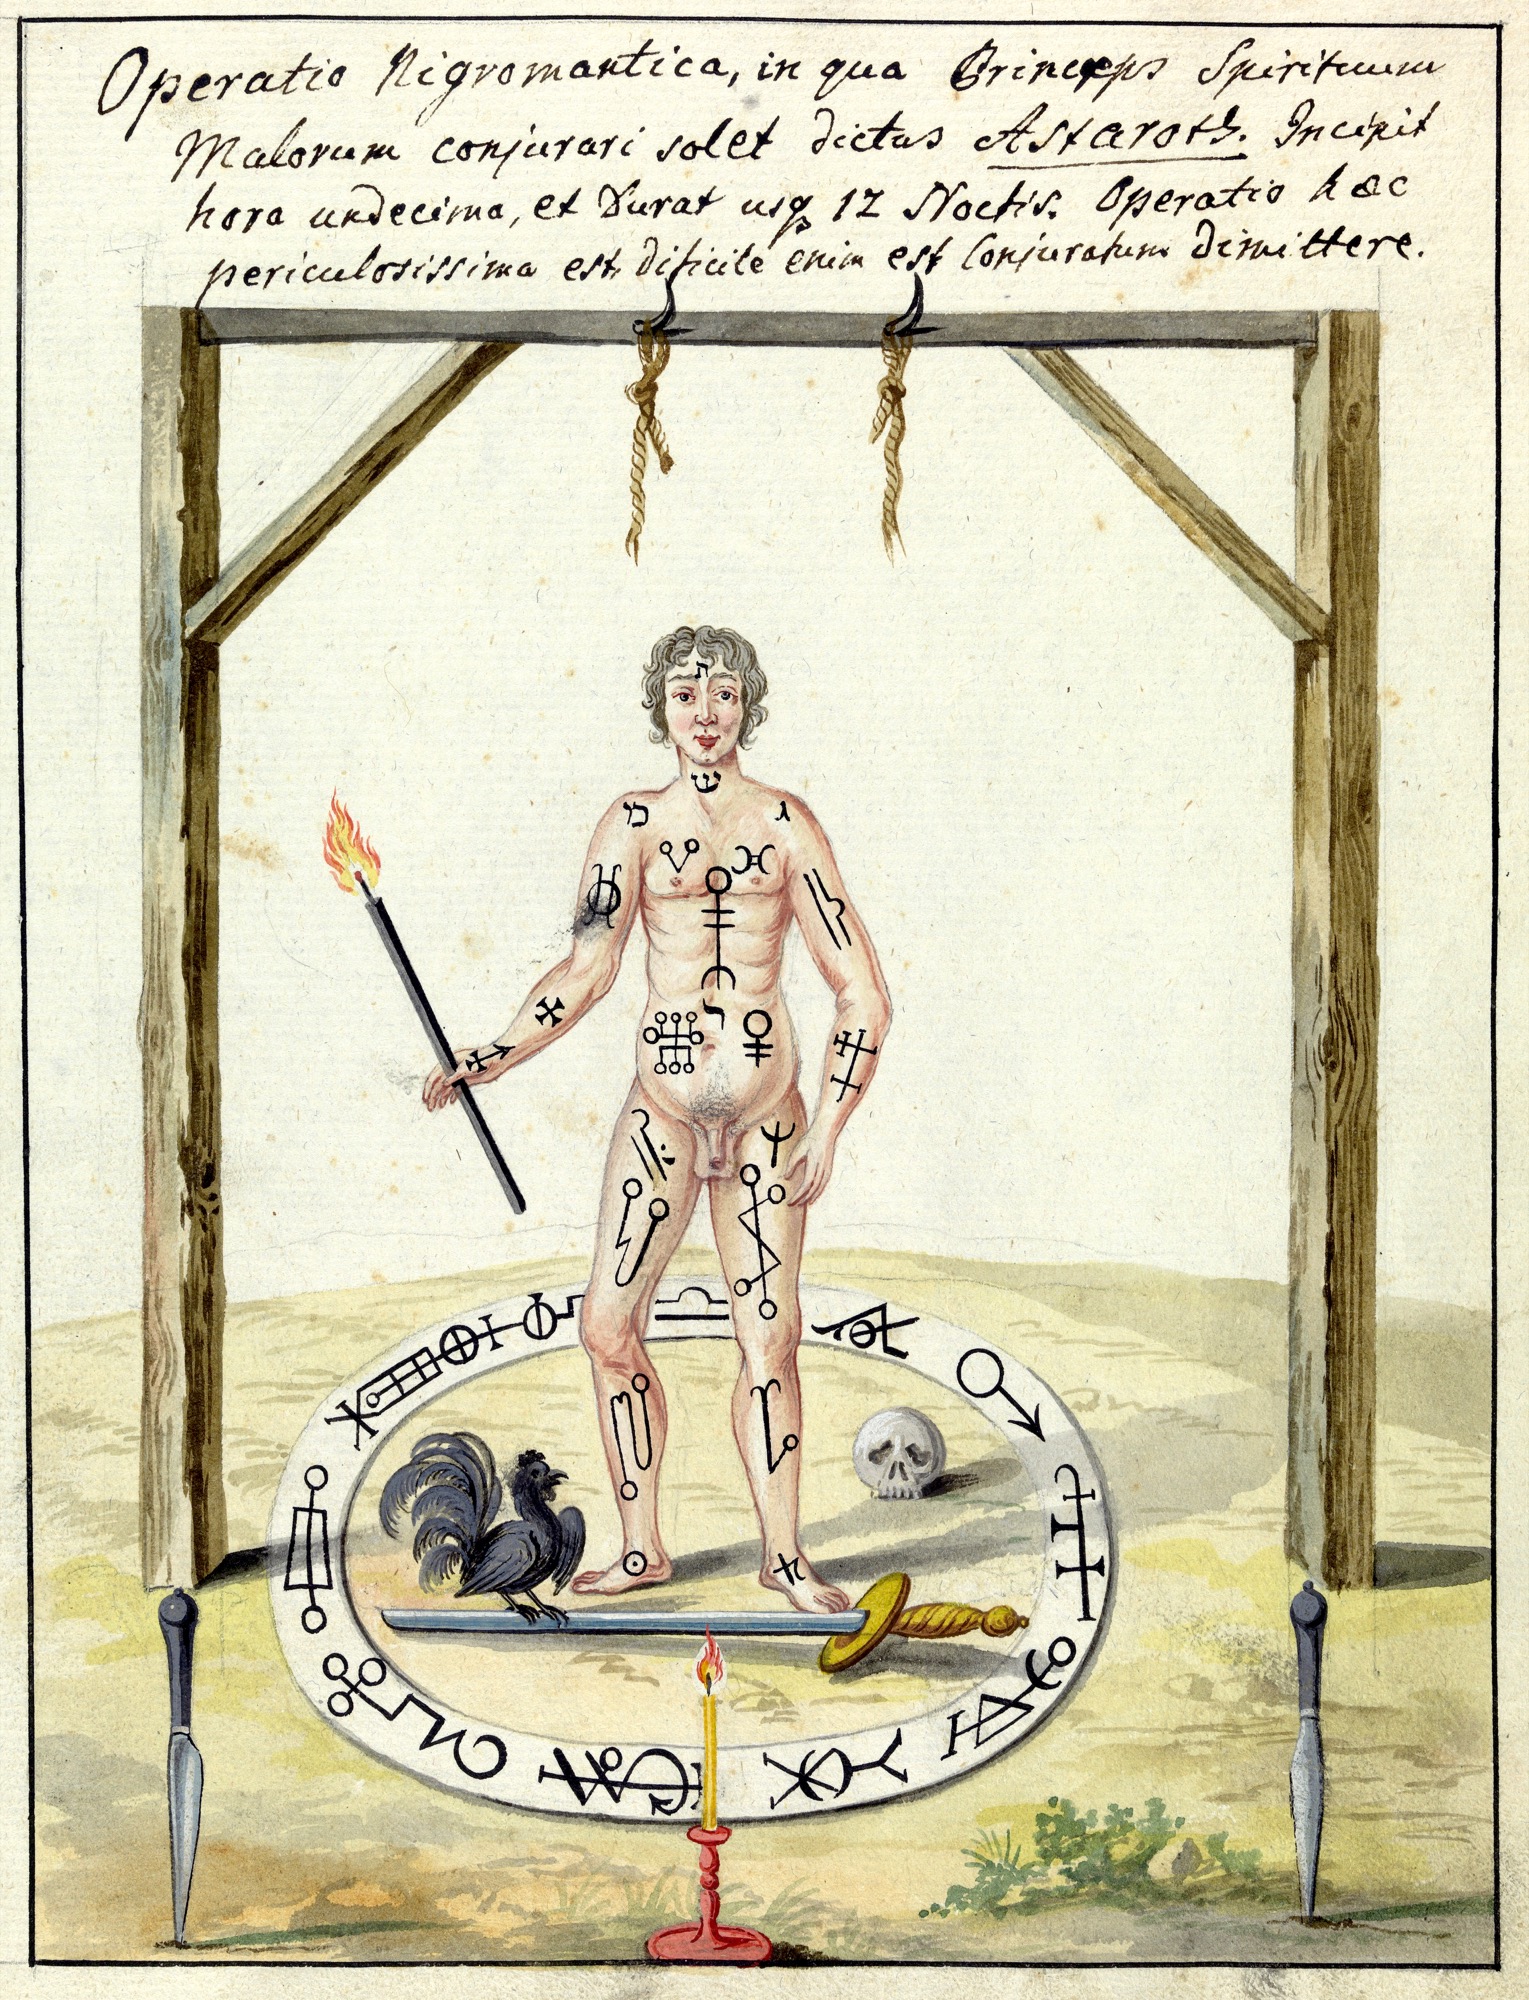 Operatio Nigromantica, in qua Princeps Spirituum
Malorum conjurari solet dictus Astaroth. Incipit
hora undecima, et Durat usq 12 Noctis. Operatio hæc
periculosissima est, dificile enim est Conjuratum dimittere.
ת
ש
מ
ג
ר